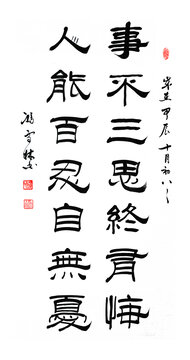 事不三思終有悔
人能百忍自無憂
歲在甲辰十月初八